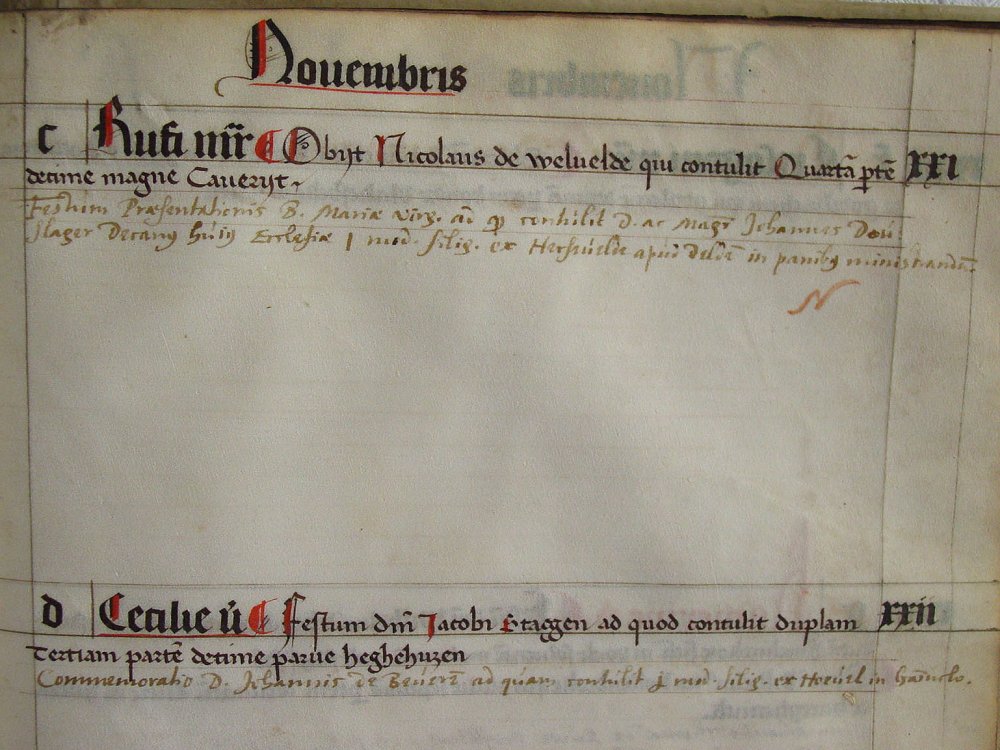 Nouembris
c Rufi mr̄r Obijt Nicolaus de weluelde qui contulit Quartā ptē XXI
decime magne Caverijt
Festum Præsentationis B. Mariæ virg. ad contulit D. ac Magr Johannes Dou
slager Decanus huius Ecclesiæ 1 mod. silig. ex Hersuelde apud deldē in panibus ministrandū.
N
d Cecilie v̄ Festum dn̄i Jacobi Staggen ad quod contulit duplam xxii
Tertiam partē decime parue heghehuzen
Commemoratio D. Johannis de Beuerē ad quam contulit mod. silig. ex in